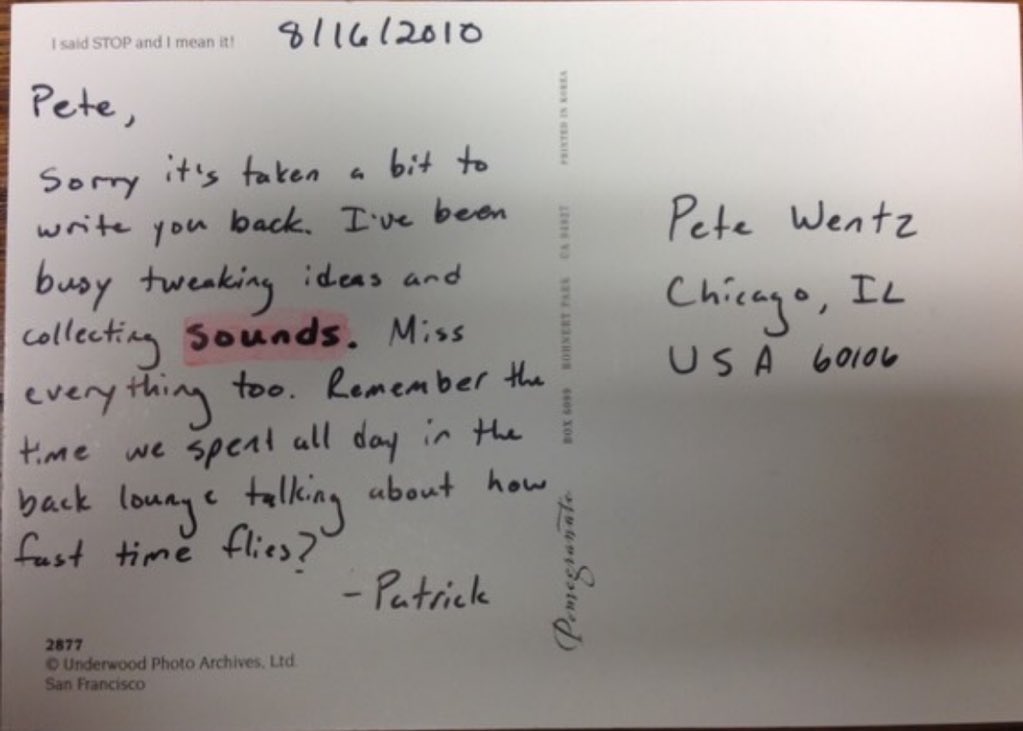 I said STOP and I mean it!
8/16/2010
Pete,
Sorry it's taken a bit to
write you back. I've been
busy tweaking ideas and
collecting sounds. Miss
everything too. Remember the
time we spent all day in the
back lounge talking about how
fast time flies?
- Patrick
2877
© Underwood Photo Archives, Ltd.
San Francisco
Pomegranate
BOX 6099 ROHNERT PARK CA 94927 PRINTED IN KOREA
Pete Wentz
Chicago, IL
USA 60106